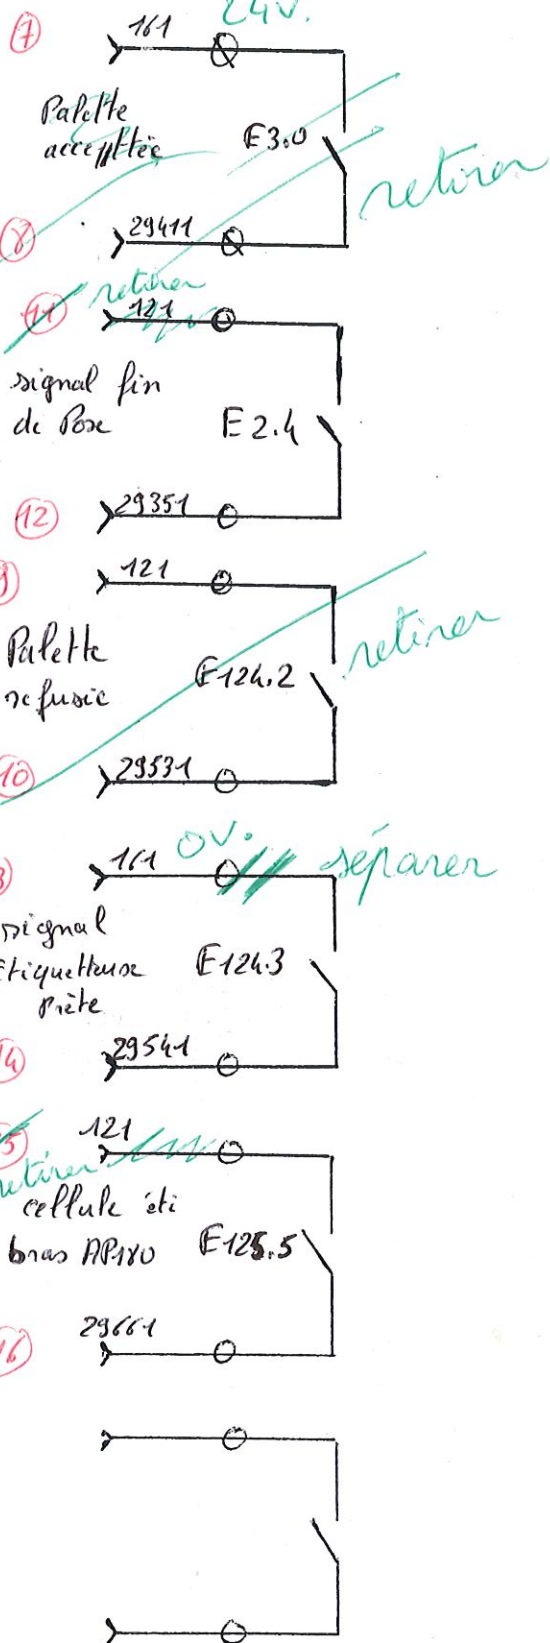 24v.
7 161
Palette
acceptée
E3.0
retirer
8 29411
retirer
11 121
signal fin
de Pose
E2.4
12 29351
121
Palette
refusée
E124.2
retirer
10 29531
161 0v. séparer
signal
Etiquetteuse
Prète
E124.3
29541
121
retirer
cellule éti
bras AP180
E125.5
29661